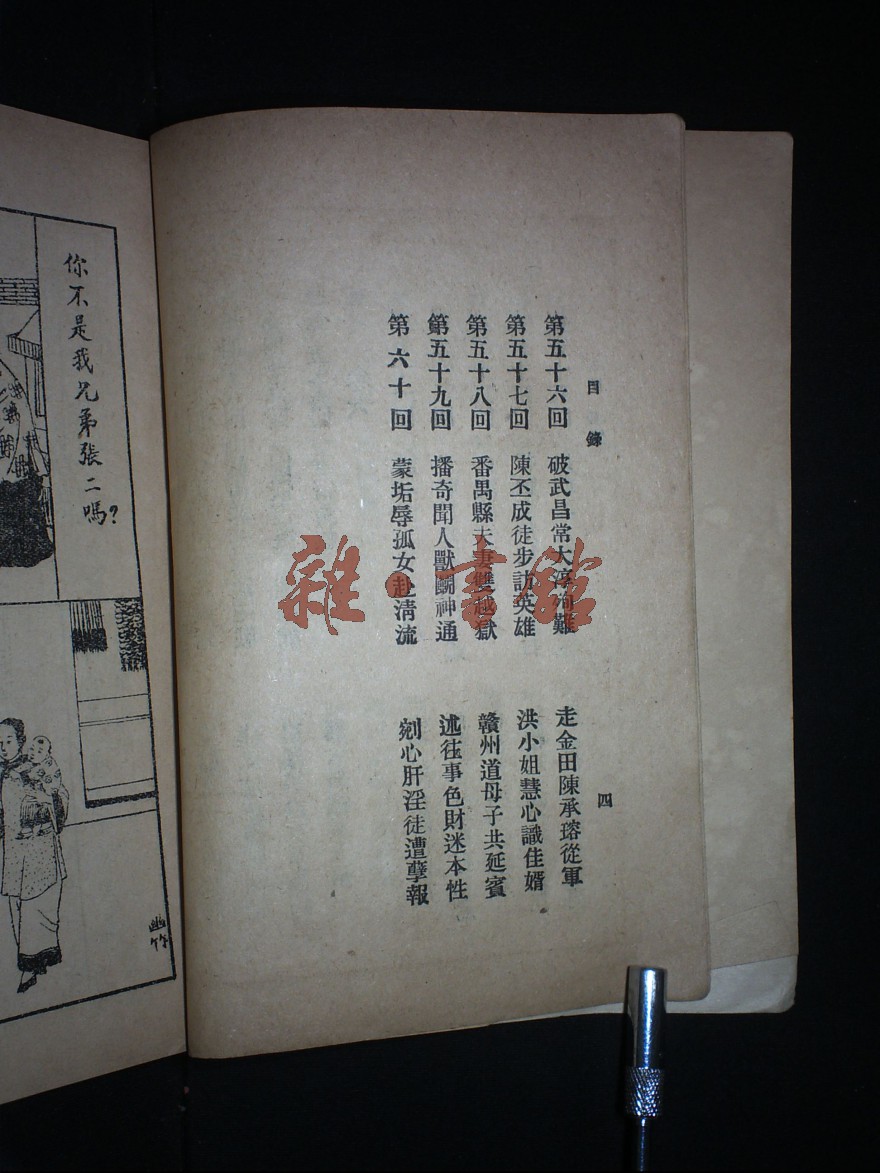 目錄
四
第五十六回 破武昌常大淳殉難 走金田陳承瑢從軍
第五十七回 陳丕成徒步訪英雄 洪小姐慧心識佳婿
第五十八回 番禺縣夫妻雙越獄 贛州道母子共延賓
第五十九回 播奇聞人獸鬭神通 述往事色財迷本性
第六十回 蒙垢辱孤女赴清流 剜心肝淫徒遭孽報
你不是我兄弟張二嗎?
幽竹
雜·書館